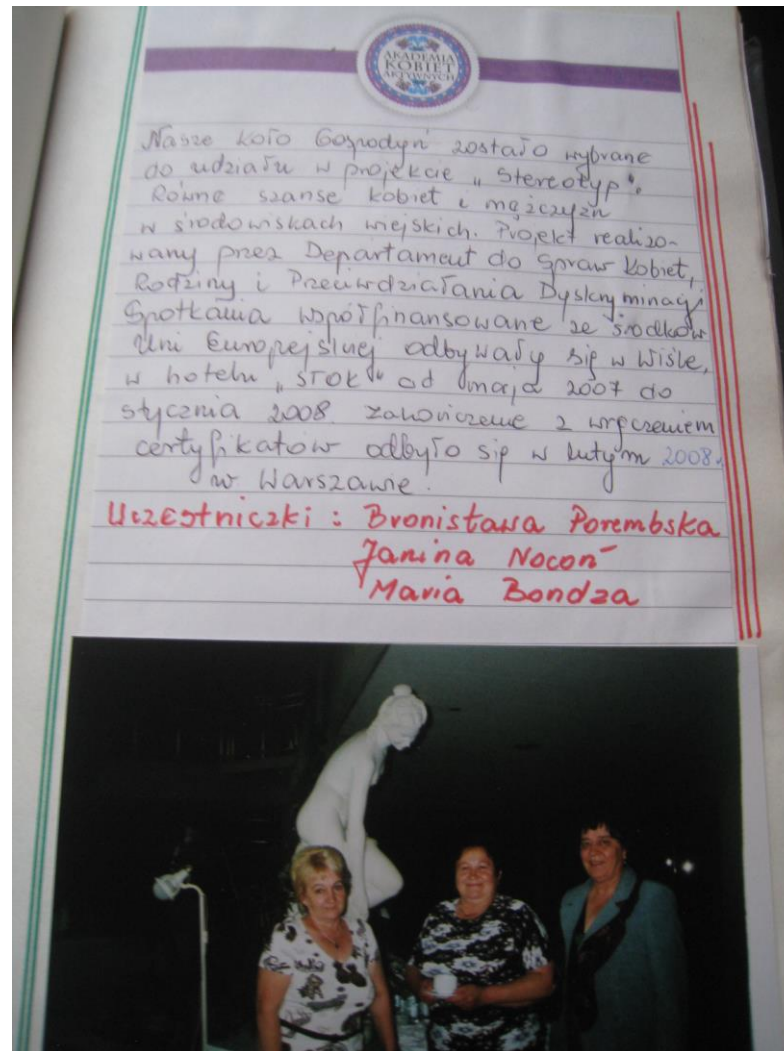 AKADEMIA
KOBIET
AKTYWNYCH
Nasze Koło Gospodyń zostało wybrane
do udziału w projekcie „Stereotyp".
Równe szanse kobiet i mężczyzn
w środowiskach wiejskich. Projekt realizo-
wany przez Departament do Spraw Kobiet,
Rodziny i Przeciwdziałania Dyskryminacji
Spotkania współfinansowane ze środków
Uni Europejskiej odbywały się w Wiśle,
w hotelu „STOK" od maja 2007 do
stycznia 2008. zakończenie z wręczeniem
certyfikatów odbyło się w lutym 2008r.
w Warszawie.
Uczestniczki : Bronisława Porembska
Janina Nocoń
Maria Bondza